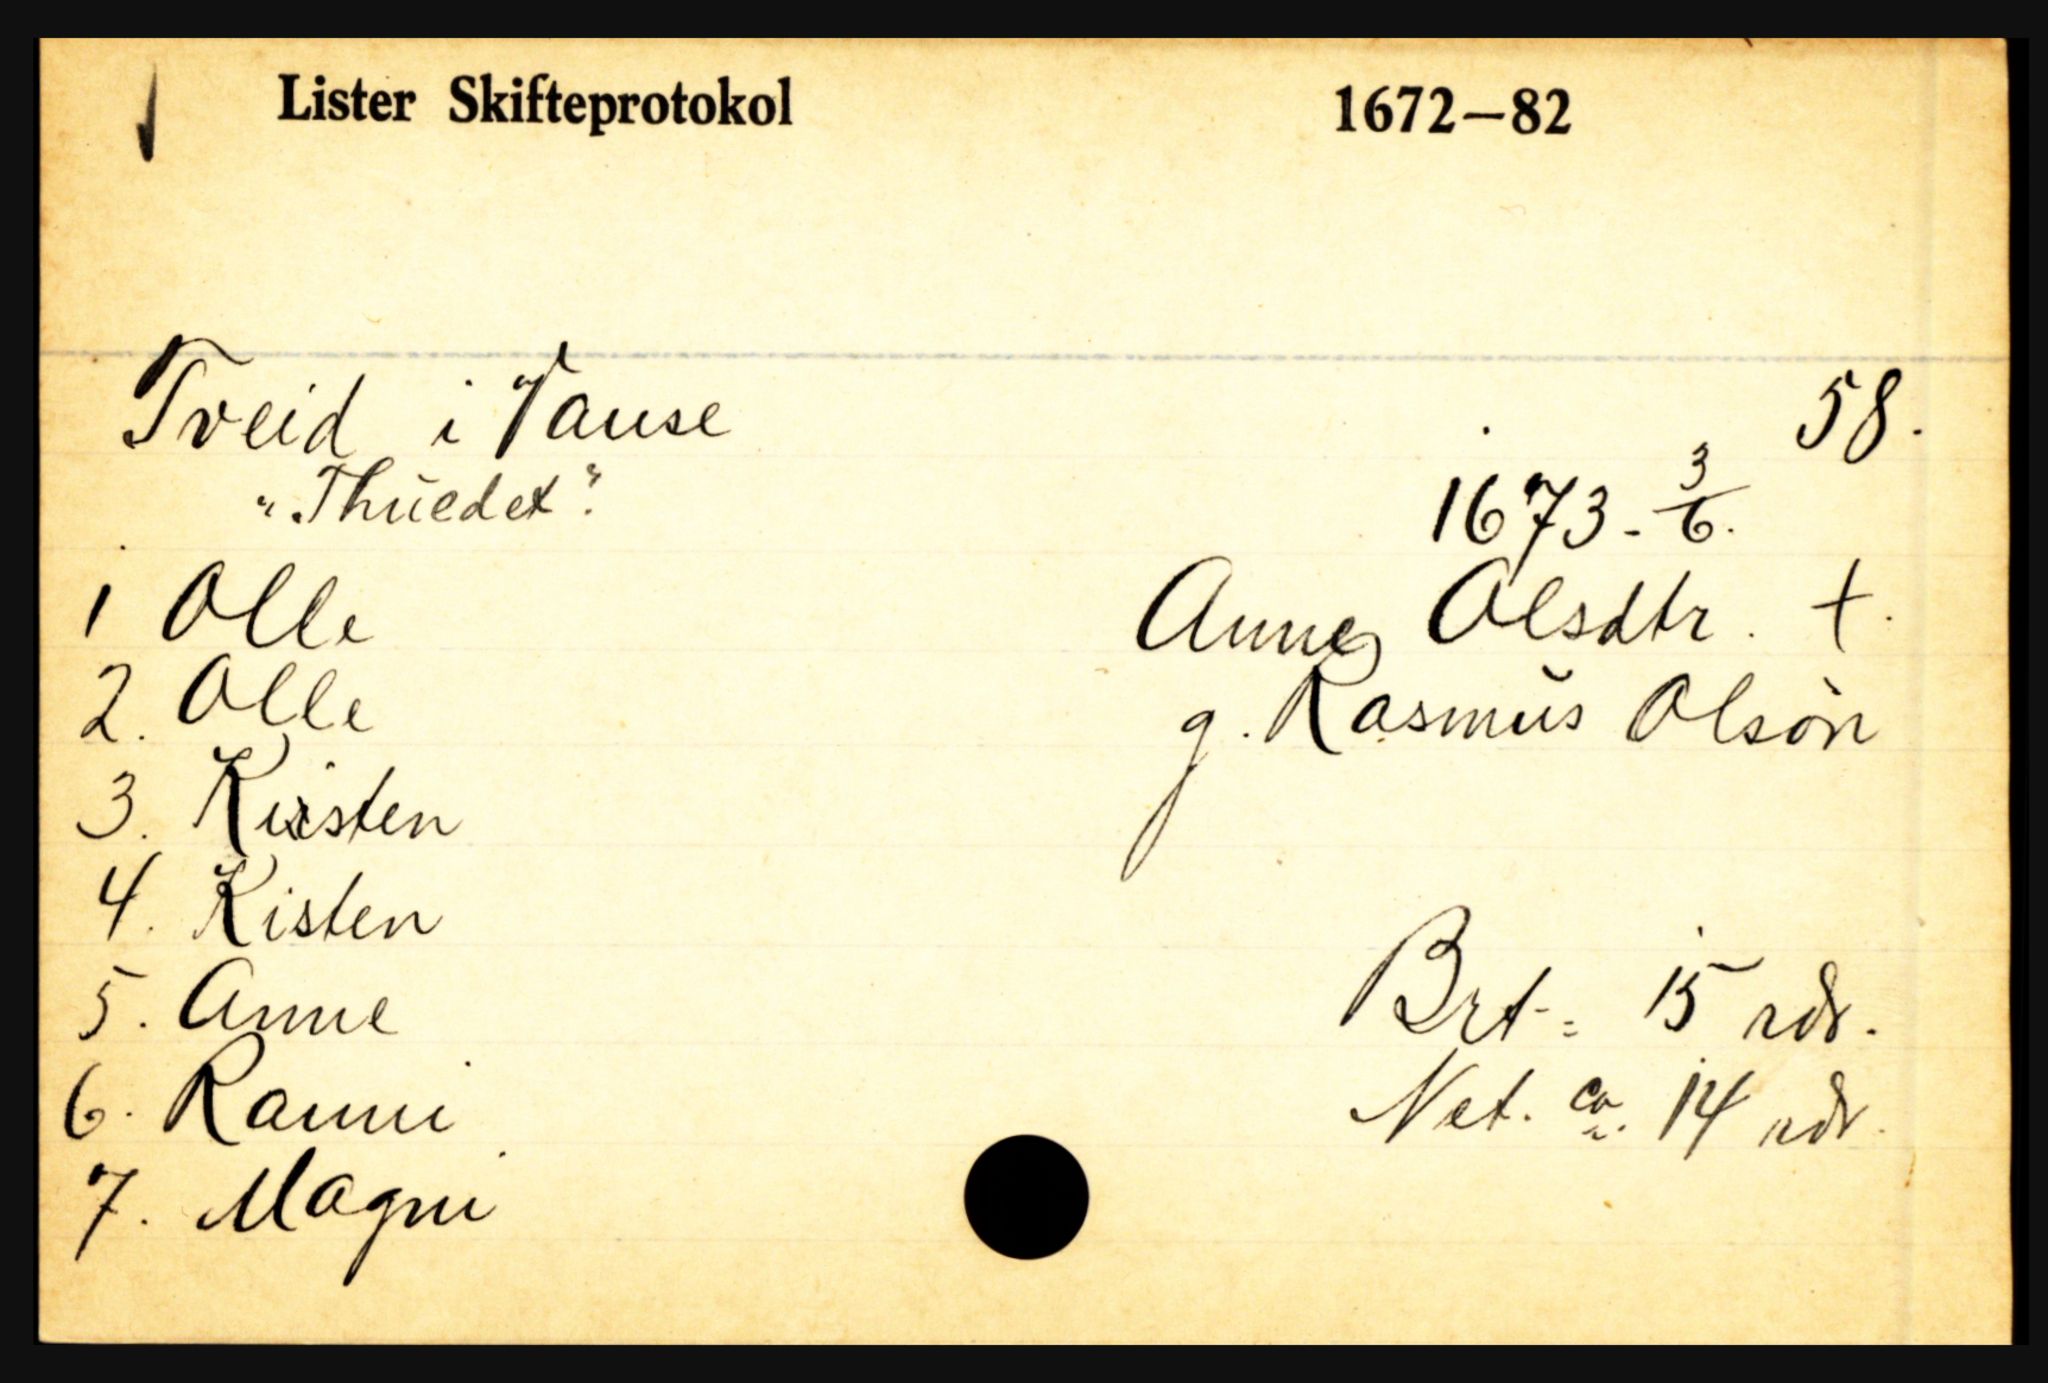 Lister Skifteprotokol 1672–82
Tveid i Vanse 58.
"Thuedet".
1673 - 3/6.
1 Olle Anne Olsdtr. †.
2. Olle g. Rasmus Olsøn
3. Kirsten
4. Kisten
5. Anne Brt.= 15 rdr.
6. Ranni Net. ca. 14 rdr.
7. Magni